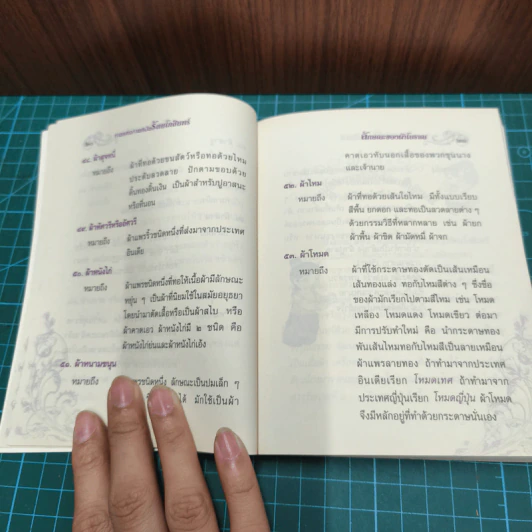 ๔๘. ผ้าสุจหนี่
หมายถึง ผ้าที่ทอด้วยขนสัตว์หรือทอด้วยไหม
ประดับลวดลาย ปักตามขอบด้วย
ดิ้นทองดิ้นเงิน เป็นผ้าสำหรับปูอาสนะ
หรือที่นอน
หมายถึง ผ้าแพรริ้วชนิดหนึ่งที่ส่งมาจากประเทศ
อินเดีย
๕๐. ผ้าหนังไก่
หมายถึง ผ้าแพรชนิดหนึ่งที่ทอให้เนื้อผ้ามีลักษณะ
หยุ่น ๆ เป็นผ้าที่นิยมใช้ในสมัยอยุธยา
โดยนำมาตัดเสื้อหรือเป็นผ้าสไบ หรือ
ผ้าคาดเอว ผ้าหนังไก่มี ๒ ชนิด คือ
ผ้าหนังไก่ย่นและผ้าหนังไก่เอ้ง
๕๑. ผ้าหนามขนุน
หมายถึง ชนิดหนึ่ง ลักษณะเป็นปมเล็ก ๆ
ได้ มักใช้เป็นผ้า
คาดเอวทับนอกเสื้อของพวกขุนนาง
และเจ้านาย
๕๒. ผ้าไหม
หมายถึง ผ้าที่ทอด้วยเส้นใยไหม มีทั้งแบบเรียบ
สีพื้น ยกดอก และทอเป็นลวดลายต่าง ๆ
ด้วยกรรมวิธีที่หลากหลาย เช่น ผ้ายก
ผ้าพื้น ผ้าขิด ผ้ามัดหมี่ ผ้าจก
๕๓. ผ้าโหมด
หมายถึง ผ้าที่ใช้กระดาษทองตัดเป็นเส้นเหมือน
เส้นทองแล่ง ทอกับไหมสีต่าง ๆ ซึ่งชื่อ
ของผ้ามักเรียกไปตามสีไหม เช่น โหมด
เหลือง โหมดแดง โหมดเขียว ต่อมา
มีการปรับทำใหม่ คือ นำกระดาษทอง
พันเส้นไหมทอกับไหมสีเป็นลายเหมือน
ผ้าแพรลายทอง ถ้าทำมาจากประเทศ
อินเดียเรียก โหมดเทศ ถ้าทำมาจาก
ประเทศญี่ปุ่นเรียก โหมดญี่ปุ่น ผ้าโหมด
จึงมีหลักอยู่ที่ทำด้วยกระดาษนั่นเอง